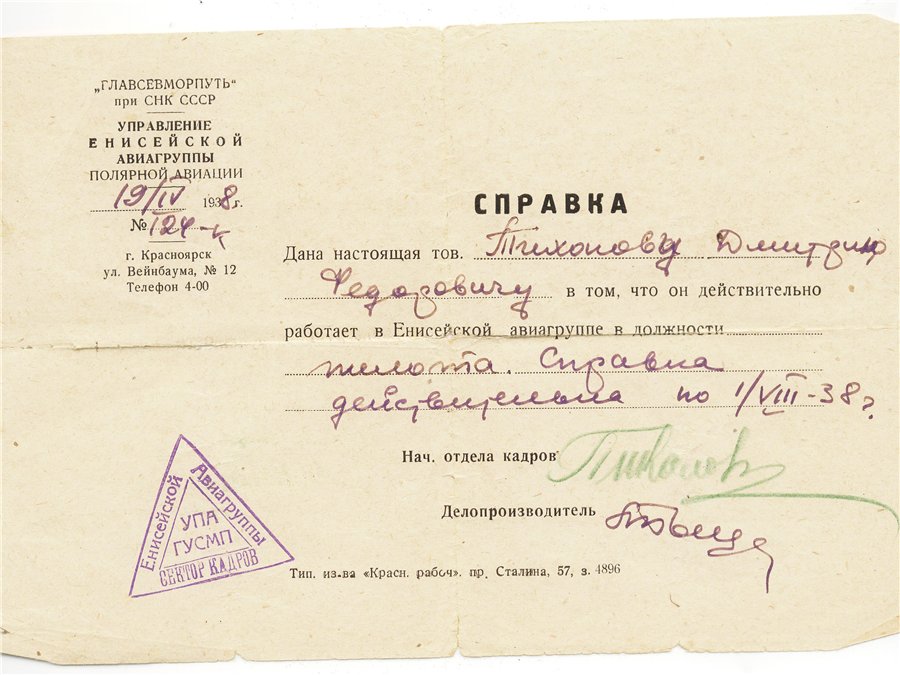 „ГЛАВСЕВМОРПУТЬ“
при СНК СССР
УПРАВЛЕНИЕ
ЕНИСЕЙСКОЙ
АВИАГРУППЫ
ПОЛЯРНОЙ АВИАЦИИ
19/IV 1938 г.
№ 124-к
г. Красноярск
ул. Вейнбаума, № 12
Телефон 4-00
СПРАВКА
Дана настоящая тов. Тихонову Дмитрию
Федоровичу в том, что он действительно
работает в Енисейской авиагруппе в должности
пилота. Справка
действительна по 1/VIII-38 г.
Нач. отдела кадров
Делопроизводитель
Енисейской Авиагруппы
УПА
ГУСМП
СЕКТОР КАДРОВ
Тип. из-ва «Красн. рабоч». пр. Сталина, 57, з. 4896